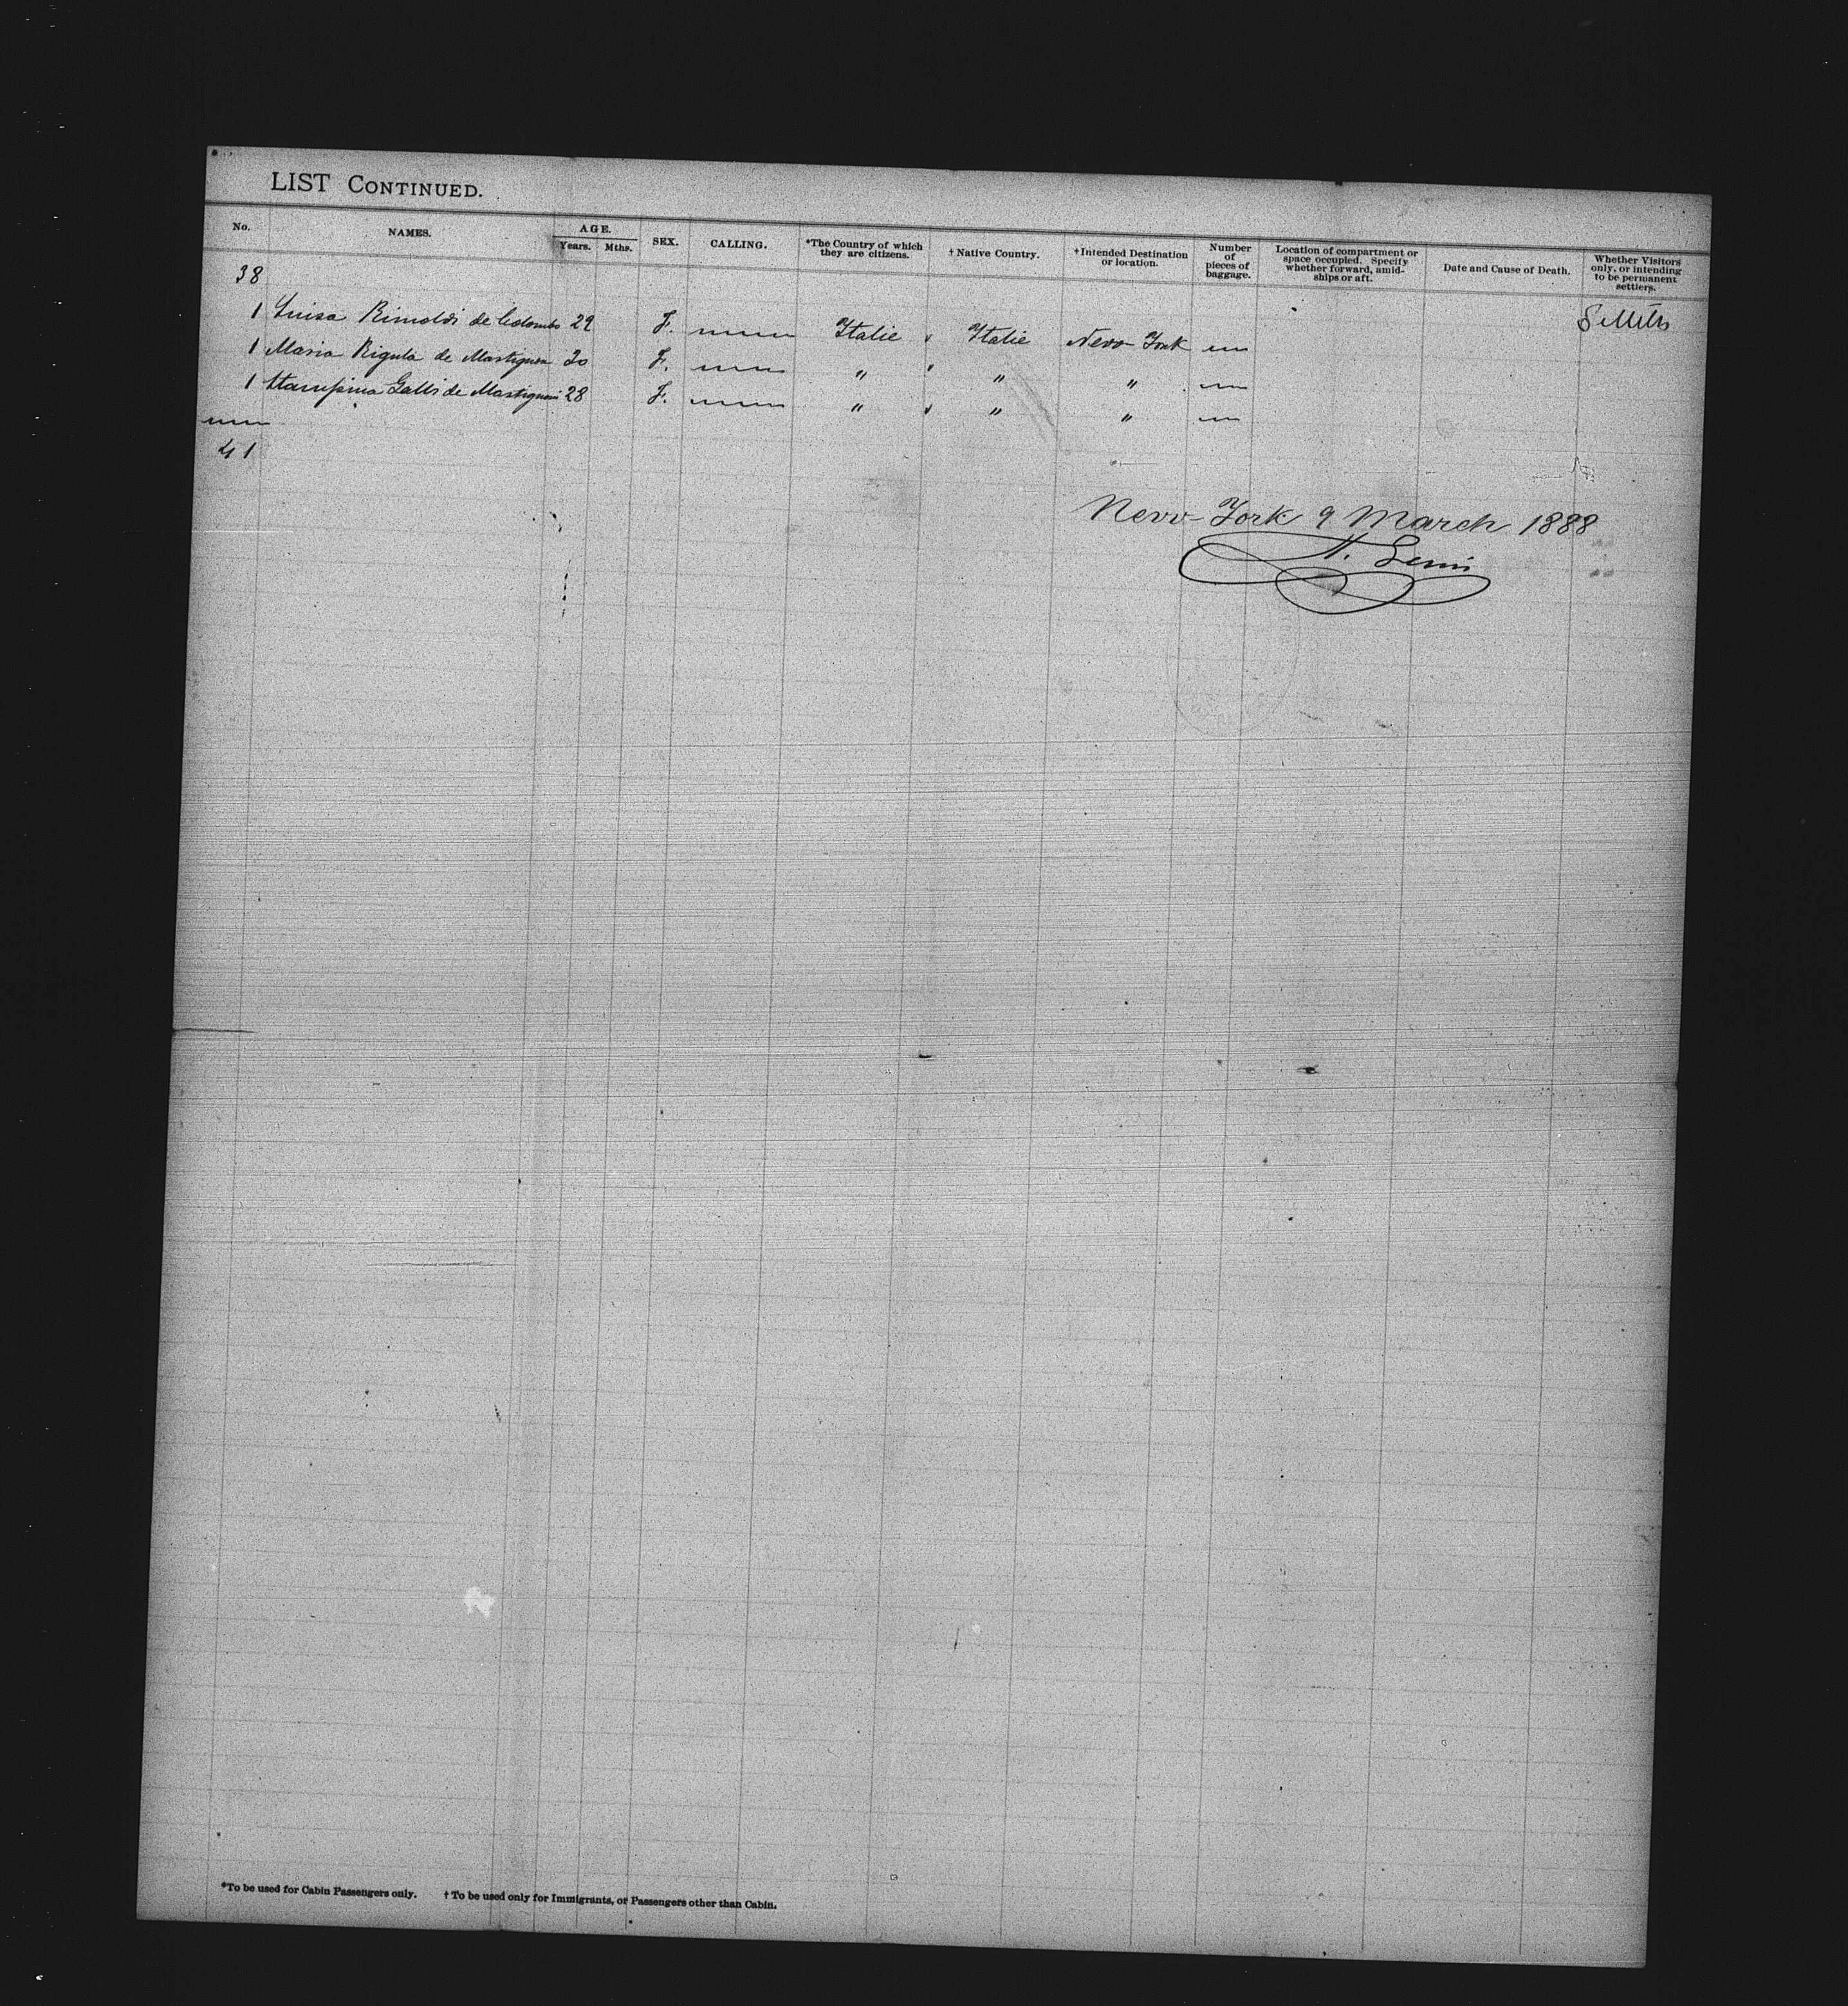 LIST CONTINUED.
No. NAMES. AGE. Years. Mths. SEX. CALLING. *The Country of which they are citizens. † Native Country. † Intended Destination or location. Number of pieces of baggage. Location of compartment or space occupied. Specify whether forward, amidships or aft. Date and Cause of Death. Whether Visitors only, or intending to be permanent settlers.
38
1 Luisa Rimoldi de Colombo 29 F. Italie Italie New-York
1 Maria Rigula de 30 F. " " "
1 Galli de 28 F. " " "
41
New-York 9 March 1888
*To be used for Cabin Passengers only. † To be used only for Immigrants, or Passengers other than Cabin.